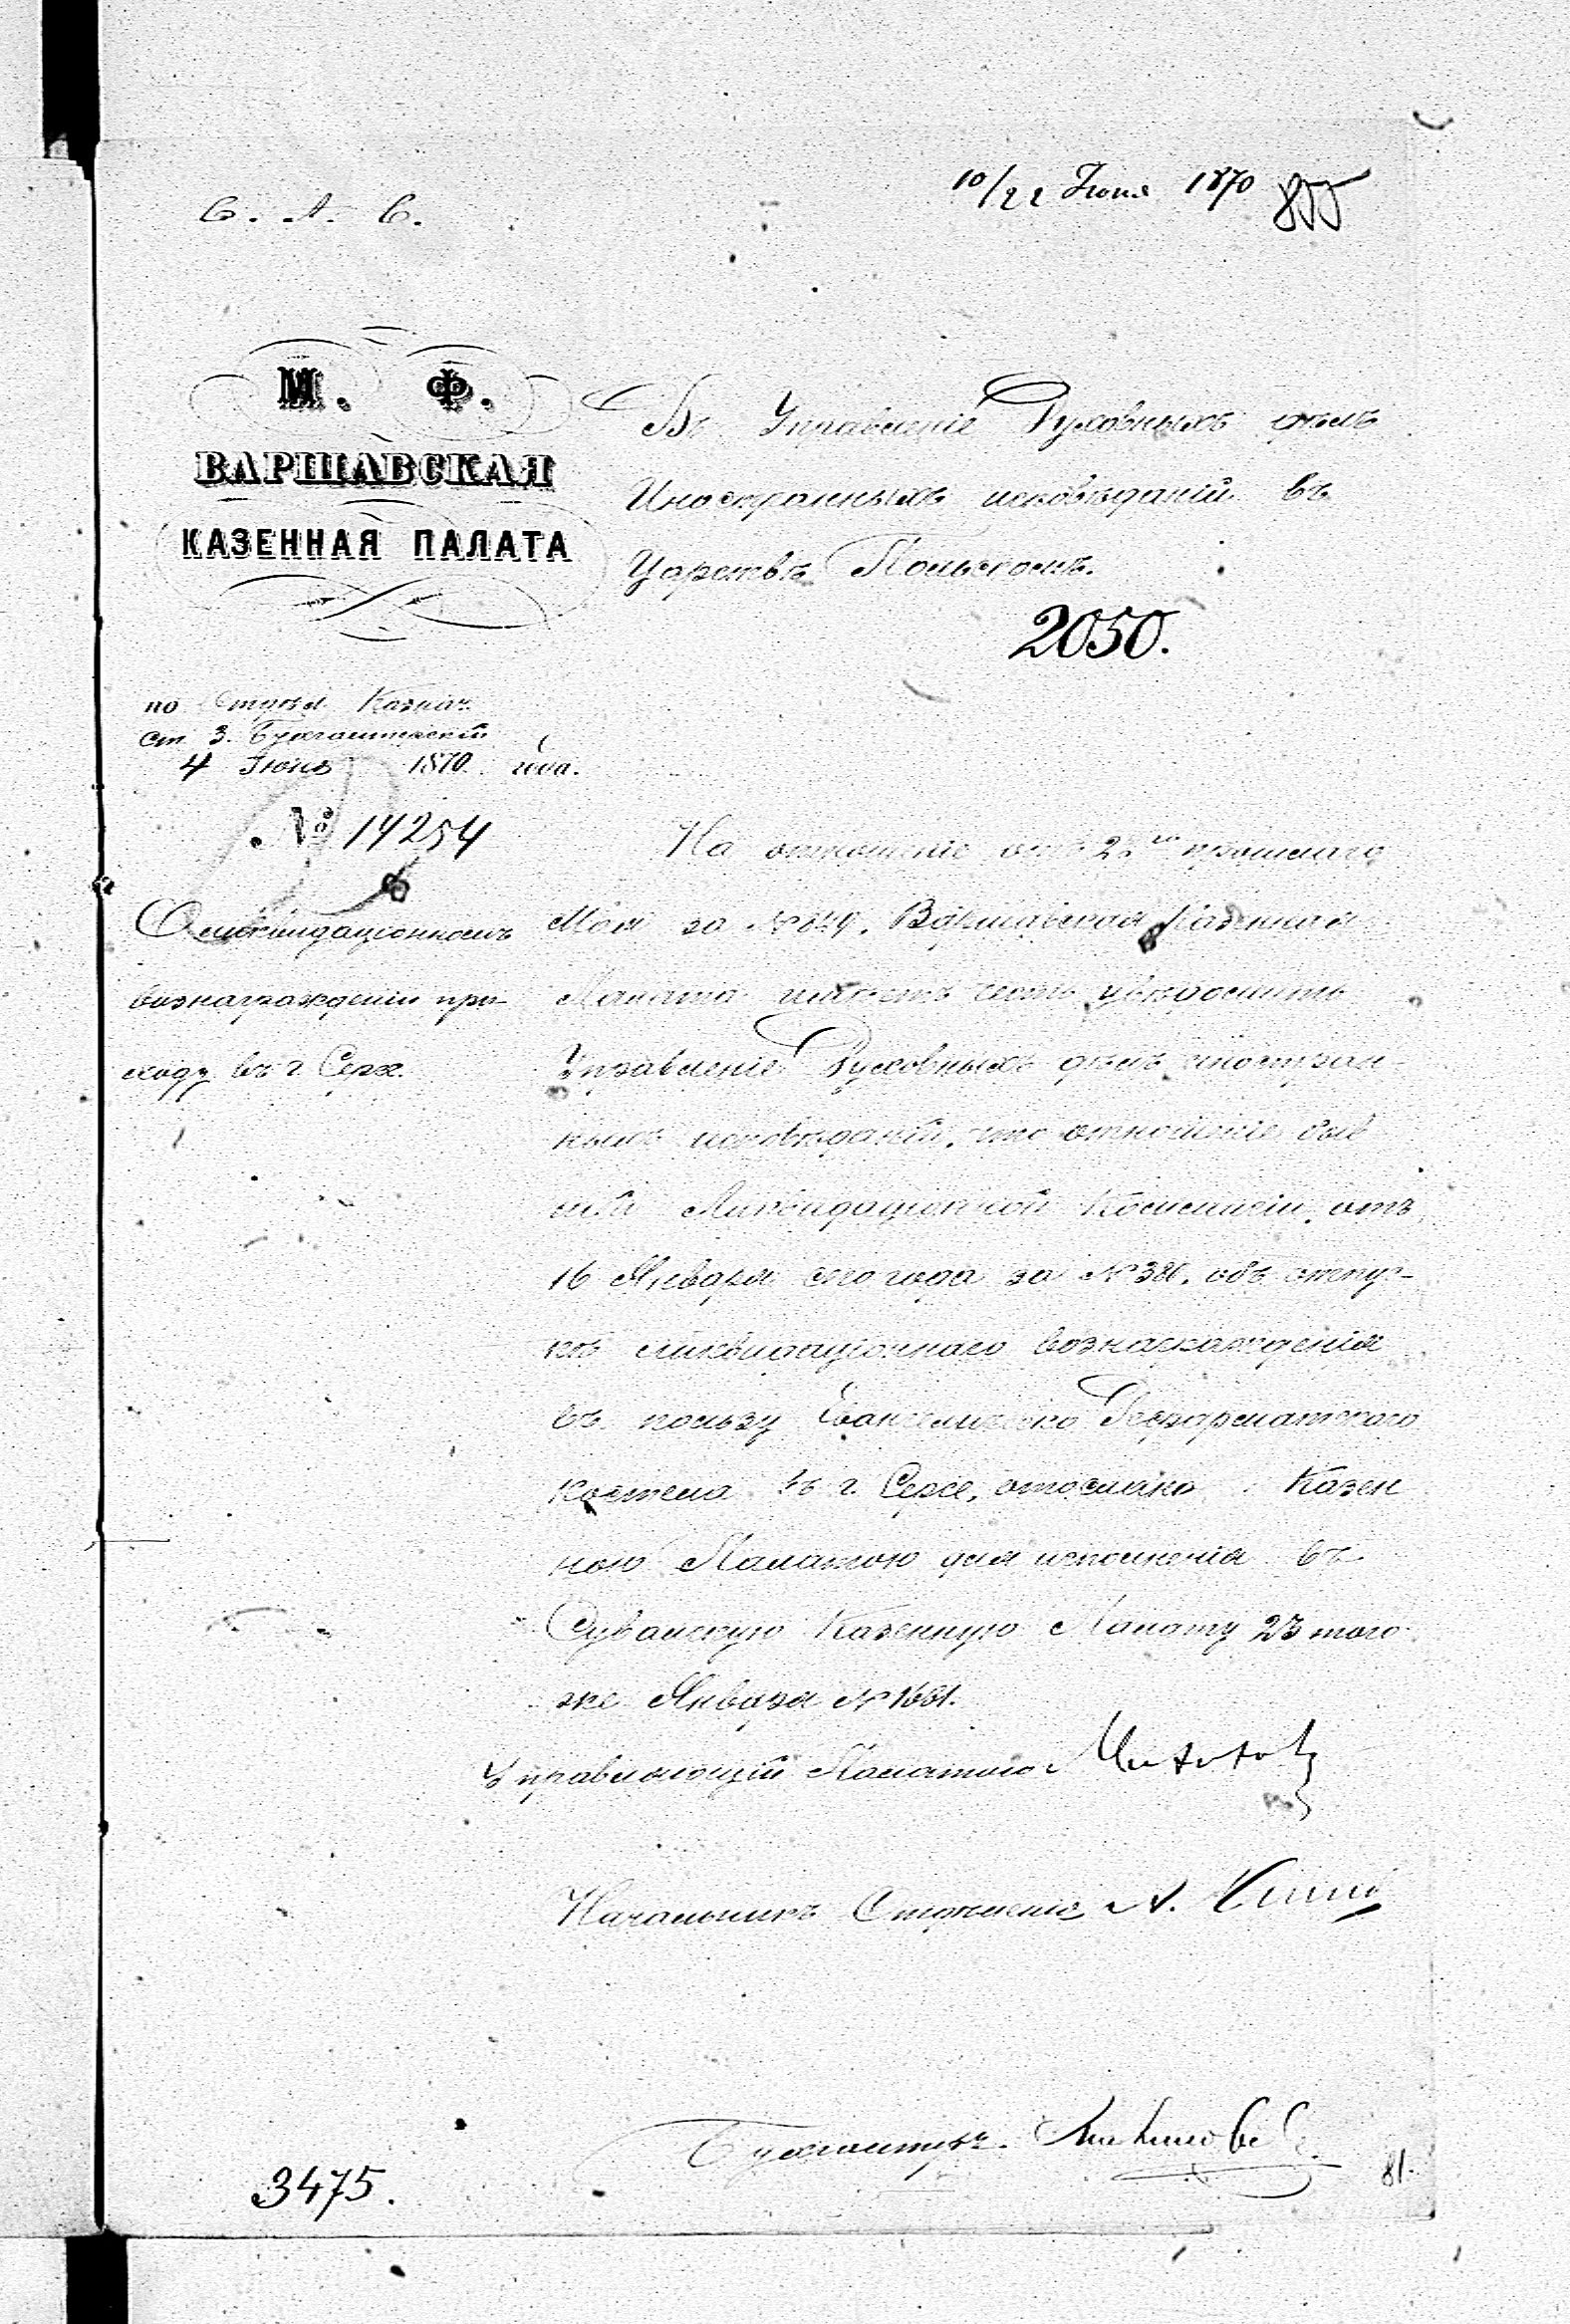 10/22 Июня 1870 855
С. А. С.
М. Ф.
ВАРШАВСКАЯ
КАЗЕННАЯ ПАЛАТА
Въ Управленіе Духовныхъ дѣлъ
Иностранныхъ исповѣданій въ
Царствѣ Польскомъ.
2050.
по Отдѣл. Казнач.
ст. 3. Бухгалтерскій
4 Іюня 1870 года.
№ 14254
О ликвидаціонномъ
вознагражденіи при-
ходу въ г. Сереѣ.
На отношеніе отъ прошлаго
Мая за № 849, Варшавская Казенная
Палата имѣетъ честь увѣдомить
Управленіе Духовныхъ дѣлъ иностран-
ныхъ исповѣданій, что отношеніе быв
шей Ликвидаціонной Коммисіи, отъ
16 Января сего года за № 381, объ отпус-
кѣ ликвидаціоннаго вознагражденія
въ пользу Евангелическо Реформатскаго
костела въ г. Сереѣ, отослано Казен
ною Палатою для исполненія въ
Сувалскую Казенную Палату 23 того-
же Января № 1681.
Управляющій Палатою
Начальникъ Отдѣленія А.
Бухгалтеръ
3475.
81.